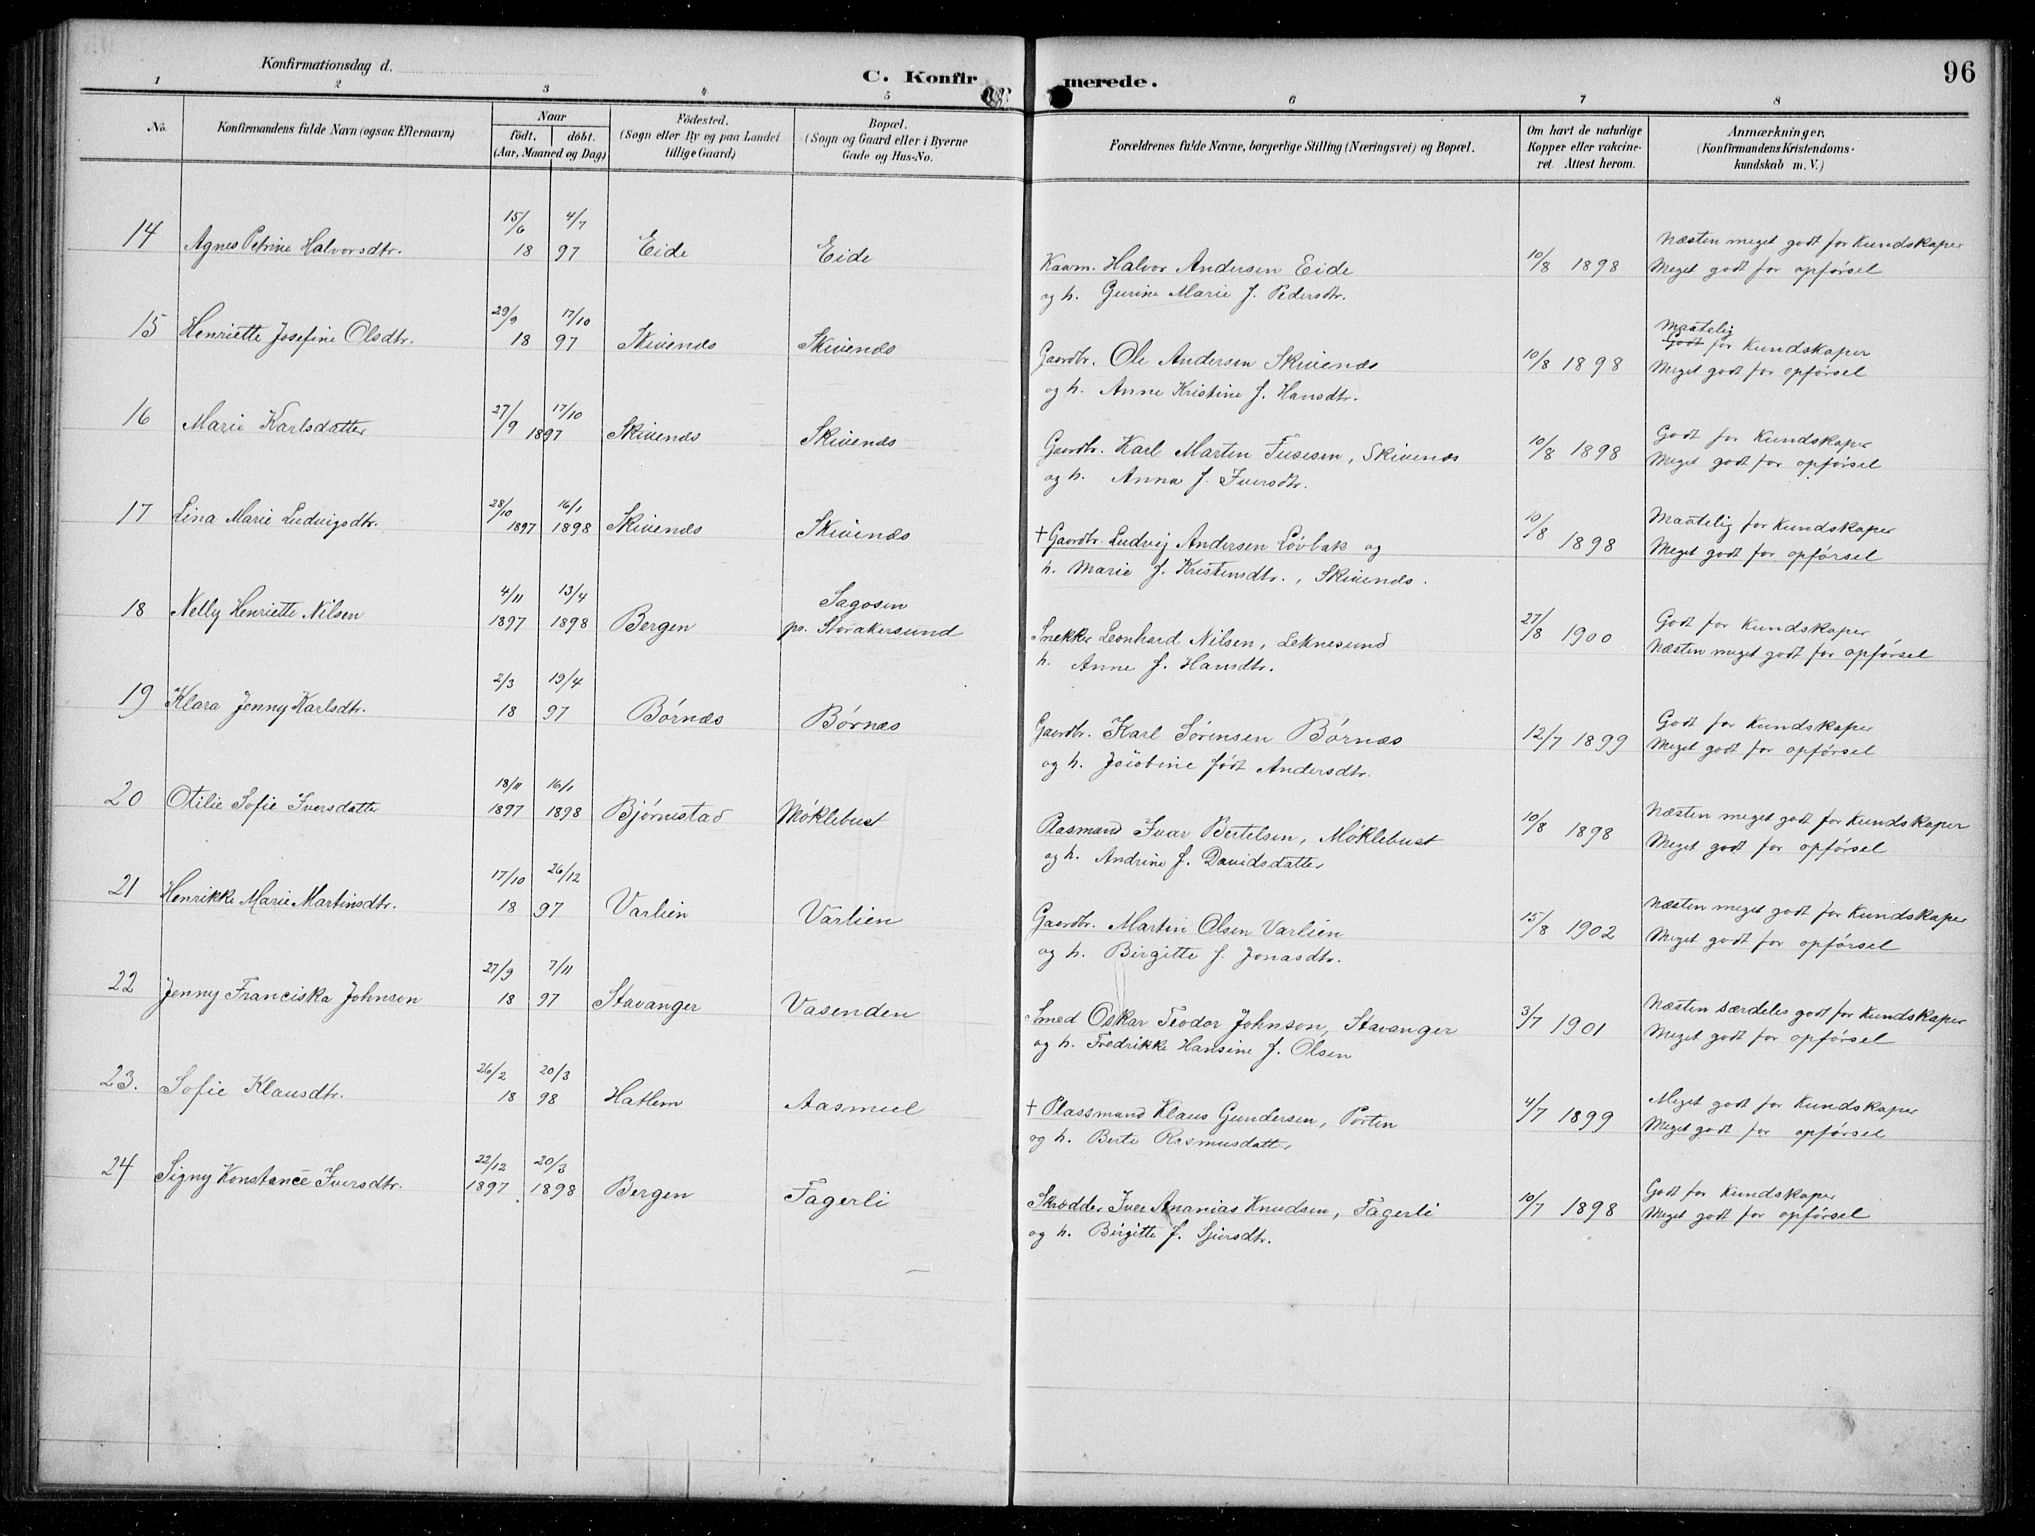 96
Konfirmationsdag d.
C. Konfirmerede.
1 2 3 4 5 6 7 8
No. Konfirmandens fulde Navn (ogsaa Efternavn) Naar født. døbt. (Aar, Maaned og Dag) Fødested. (Sogn eller By og paa Landet tillige Gaard) Bopæl. (Sogn og Gaard eller i Byerne Gade og Hus-No. Forældrenes fulde Navne, borgerlige Stilling (Næringsvei) og Bopæl. Om havt de naturlige Kopper eller vakcineret. Attest herom. Anmærkninger, (Konfirmandens Kristendomskundskab m. V.)
14 Agnes Petrine Halvorsdtr. 15/6 18 4/7 97 Eide Eide Kaarm. Halvor Andersen Eide 10/8 1898 Næsten meget godt for Kundskaper
og h. Gurine Marie f. Pedersdtr. Meget godt for opførsel
15 Henriette Josefine Olsdtr. 29/9 18 17/10 97 Skivenes Skivenes Gaardbr. Ole Andersen Skivenes 10/8 1898 Maatelig Godt for Kundskaper
og h. Anne Kristine f. Hansdtr. Meget godt for opførsel
16 Marie Karlsdatter 27/9 17/10 1897 Skivenes Skivenes Gaardbr. Karl Martin Tusesen, Skivenes 10/8 1898 Godt for Kundskaper
og h. Anna f. Iversdtr. Meget godt for opførsel
17 Lina Marie Ludvigsdtr. 28/10 1897 16/1 1898 Skivenes Skivenes + Gaardbr. Ludvig Andersen Løvbak og 10/8 1898 Maatelig for Kundskaper
h. Marie f. Kristensdtr., Skivenes. Meget godt for opførsel
18 Nelly Henriette Nilsen 4/11 1897 13/4 1898 Bergen Sagosen pr. Storakersund Snekker Leonhard Nilsen, Leknesund 27/8 1900 Godt for Kundskaper
h. Anne f. Hansdtr. Næsten meget godt for opførsel
19 Klara Jenny Karlsdtr. 2/3 18 19/4 97 Børnes Børnes Gaardbr. Karl Sørensen Børnes 12/7 1899 Godt for Kundskaper
og h. Jakobine født Andersdtr. Meget godt for opførsel
20 Otilie Sofie Iversdatter 18/11 1897 16/1 1898 Bjørnestad Møklebust Plasmand Ivar Bertelsen, Møklebust 10/8 1898 Næsten meget godt for Kundskaper
og h. Andrine f. Davidsdatter Meget godt for opførsel
21 Henrikke Marie Martinsdtr. 17/10 18 26/12 97 Varlien Varlien Gaardbr. Martin Olsen Varlien 15/8 1902 Næsten meget godt for Kundskaper
og h. Birgitte f. Jonasdtr. Meget godt for opførsel
22 Jenny Franciska Johnson 27/9 18 7/11 97 Stavanger Vasenden Smed Oskar Teodor Johnson, Stavanger 3/7 1901 Næsten særdeles godt for Kundskaper
og h. Fredrikke Hansine f. Olsen Meget godt for opførsel
23. Sofie Klausdtr. 26/2 18 20/3 98 Hatlem Aasmul + Plassmand Klaus Gundersen, Porten 4/7 1899 Meget godt for Kundskaper
og h. Berte Rasmusdatter Meget godt for opførsel
24 Signy Konstance Iversdtr. 22/12 1897 20/3 1898 Bergen Fagerli Skrædder Iver Ananias Knudsen, Fagerli 10/7 1898 Godt for Kundskaper
og h. Birgitte f. Sjursdtr. Meget godt for opførsel